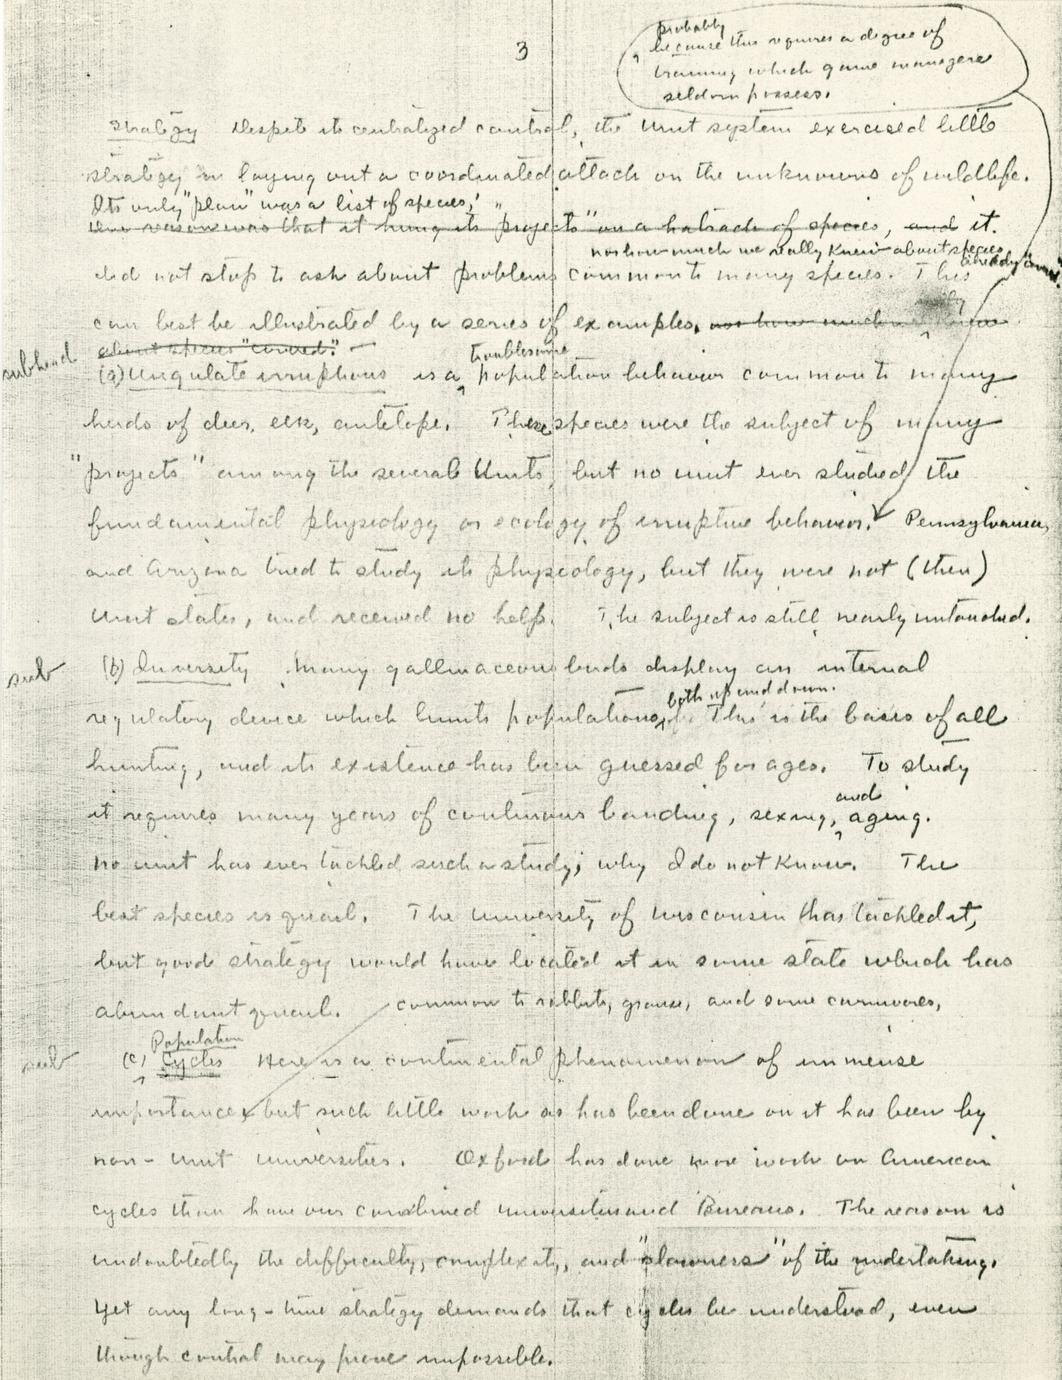 3
probably
because this requires a degree of
training which game managers
seldom possess.
Strategy Despite its centralized control, the Unit system exercised little
strategy in laying out a coordinated attack on the unknowns of wildlife.
Its only "plan" was a list of species;
One reason was that it hung its "projects" on a hatrack of species, and it
nor how much we really knew about species
already "covered."
did not stop to ask about problems common to many species. This
can best be illustrated by a series of examples, nor how much we
about species "covered."
subhead
troublesome
(a) Ungulate irruptions is a population behavior common to many
herds of deer, elk, antelope. These species were the subject of many
"projects" among the several Units, but no unit ever studied the
fundamental physiology or ecology of irruptive behavior. Pennsylvania,
and Arizona tried to study its physiology, but they were not (then)
Unit states, and received no help. The subject is still nearly untouched.
sub
(b) Inversity Many gallinaceous birds display an internal
both up and down.
regulatory device which limits populations, This is the basis of all
hunting, and its existence has been guessed for ages. To study
and
it requires many years of continuous banding, sexing, aging.
No unit has ever tackled such a study; why I do not know. The
best species is quail. The University of Wisconsin has tackled it,
but good strategy would have located it in some state which has
abundant quail.
common to rabbits, grouse, and some carnivores,
sub
Population
(c) Cycles Here is a continental phenomenon of immense
importance, but such little work as has been done on it has been by
non-unit universities. Oxford has done more work on American
cycles than have our combined universities and Bureaus. The reason is
undoubtedly the difficulty, complexity, and "slowness" of the undertaking.
Yet any long-time strategy demands that cycles be understood, even
though control may prove impossible.